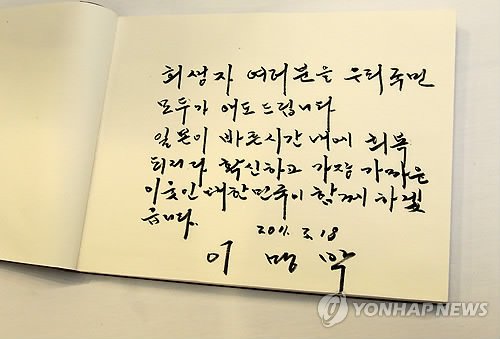 희생자 여러분을 우리 국민
모두가 애도드립니다
일본이 빠른시간 내에 회복
되리라 확신하고 가장 가까운
이웃인 대한민국이 함께 하겠
습니다.
2011. 3. 18
이 명 박
YONHAPNEWS